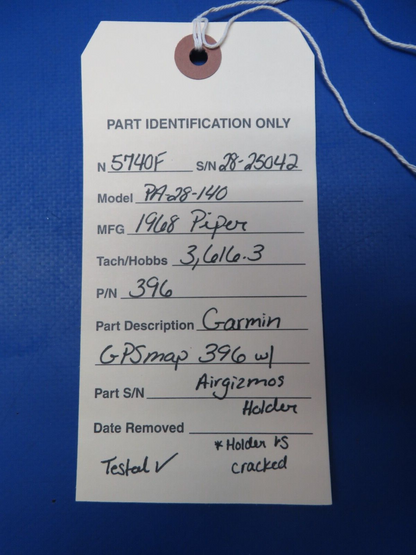 PART IDENTIFICATION ONLY
N 5740F S/N 28-25042
Model PA-28-140
MFG 1968 Piper
Tach/Hobbs 3,616.3
P/N 396
Part Description Garmin
GPSmap 396 w/
Part S/N Airgizmos
Holder
Date Removed
* Holder is
Tested ✓ cracked